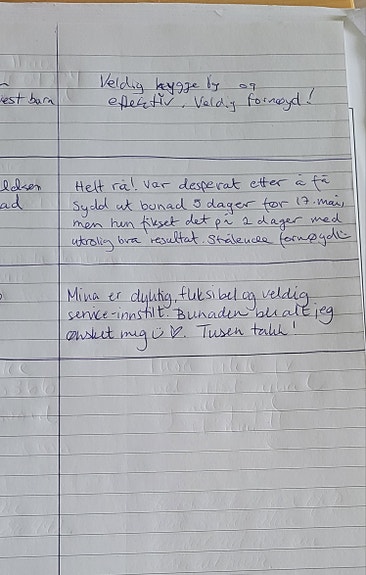 Veldig hygge by og
est barn
effektiv. Veldig fornøyd!
Helt rå! Var desperat etter å få
ad
sydd ut bunad 5 dager før 17. mai,
men hun fikset det på 2 dager med
utrolig bra resultat. Strålende fornøyd
Mina er dyktig, fleksibel og veldig
service-innstilt. Bunaden ble alt jeg
ønsket meg ☺♡. Tusen takk!